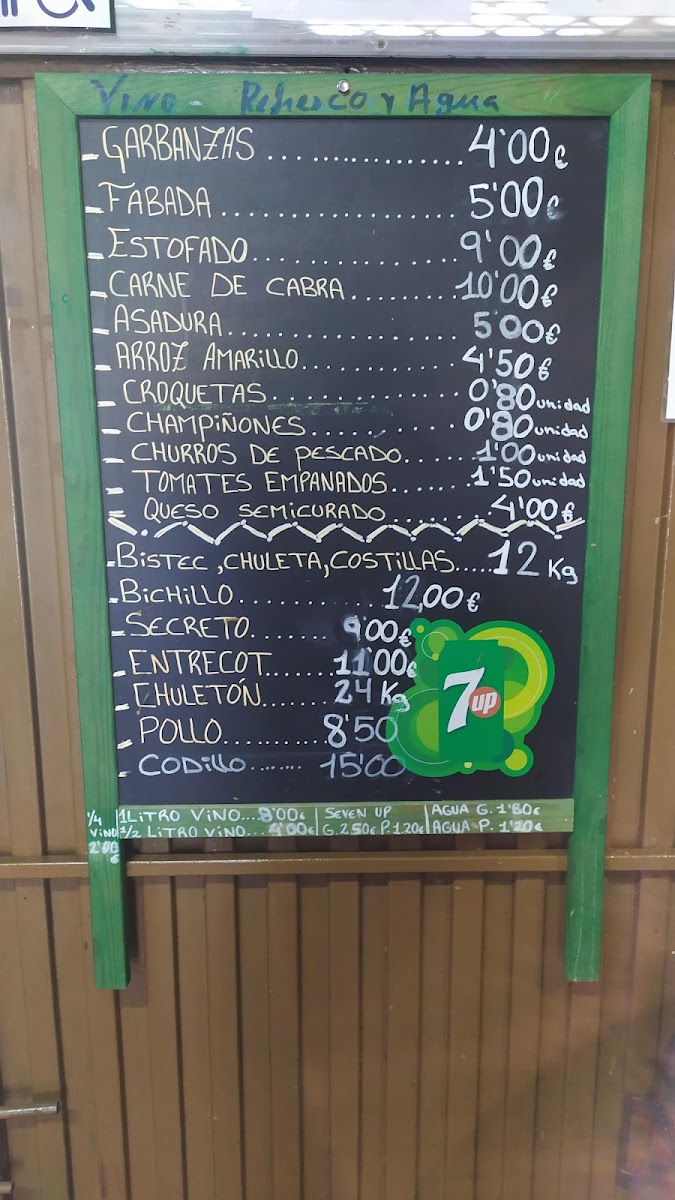 Vino - Refresco y Agua
- GARBANZAS ................ 4'00€
- FABADA .................... 5'00€
- ESTOFADO.................. 9'00€
- CARNE DE CABRA......... 10'00€
- ASADURA................... 5'00€
- ARROZ AMARILLO............ 4'50€
- CROQUETAS................ 0'80 unidad
- CHAMPIÑONES.............. 0'80 unidad
- CHURROS DE PESCADO....... 1'00 unidad
- TOMATES EMPANADOS....... 1'50 unidad
- QUESO SEMICURADO......... 4'00€
- BISTEC, CHULETA, COSTILLAS.....12 Kg
- BICHILLO.............. 12,00€
- SECRETO........ 9'00€
- ENTRECOT...... 11'00€
- CHULETÓN...... 24 Kg
- POLLO.......... 8'50
- CODILLO....... 15'00
7up
1/4 VINO 2'00 €
1 LITRO VINO... 8'00€ SEVEN UP AGUA G. 1'80€
1/2 LITRO VINO... 4'00€ G. 2.50€ P. 1.20€ AGUA P. 1'20€